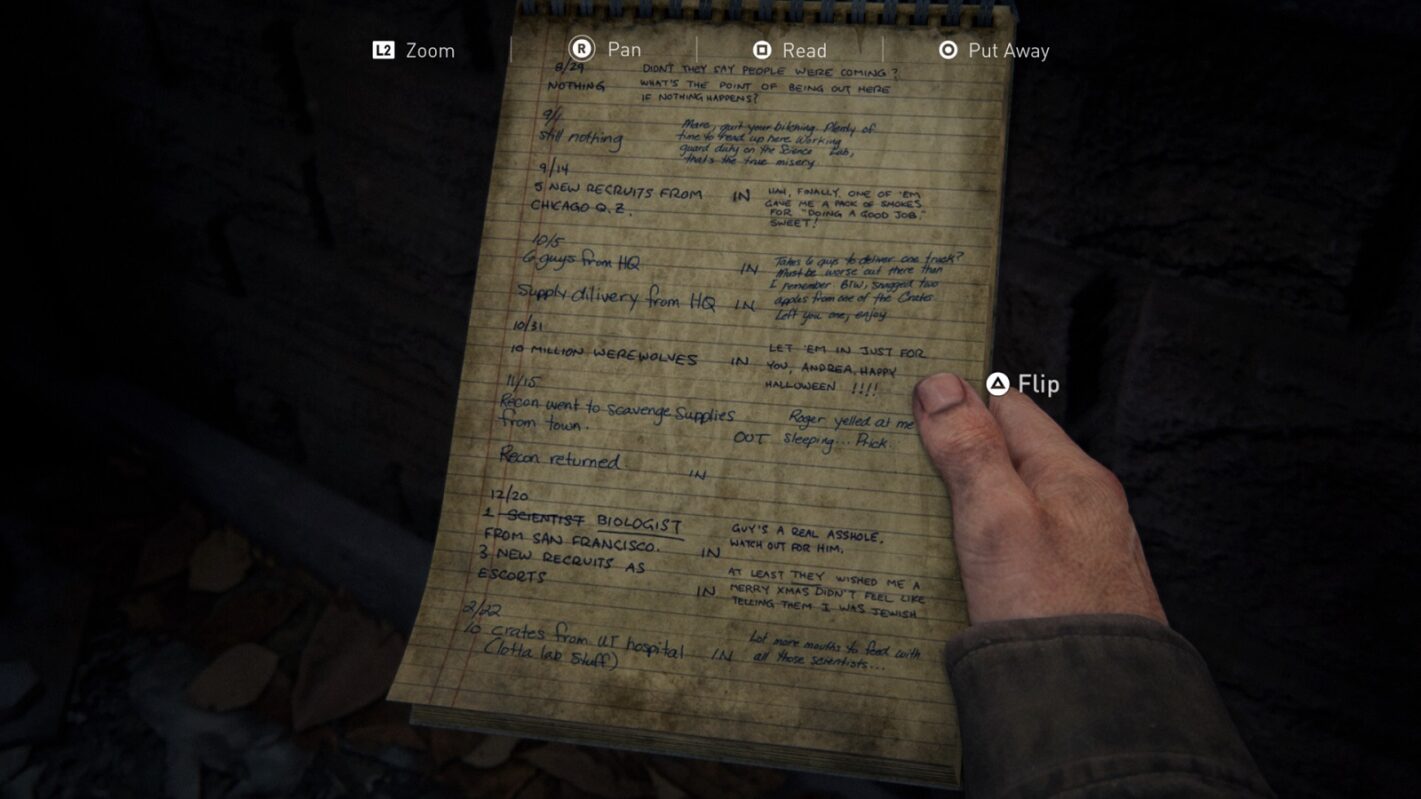 L2 Zoom
R Pan
Read
Put Away
8/29 DIDN'T THEY SAY PEOPLE WERE COMING?
NOTHING WHAT'S THE POINT OF BEING OUT HERE
IF NOTHING HAPPENS?
9/1
still nothing
Marc, quit your bitching. Plenty of
time to read up here. Working
guard duty on the Science Lab,
that's the true misery
9/14
5 NEW RECRUITS FROM
CHICAGO Q.Z.
IN
HAH, FINALLY, ONE OF 'EM
GAVE ME A PACK OF SMOKES
FOR "DOING A GOOD JOB,"
SWEET!
10/5
6 guys from HQ
IN
Supply dilivery from HQ IN
Takes 6 guys to deliver one truck?
Must be worse out there than
I remember. BTW, snagged two
apples from one of the Crates.
Left you one, enjoy
10/31
10 MILLION WEREWOLVES IN
LET 'EM IN JUST FOR
YOU, ANDREA, HAPPY
HALLOWEEN !!!!
11/15
Recon went to scavenge Supplies
from town.
OUT
Roger yelled at me
sleeping... Prick.
Recon returned IN
12/20
1 SCIENTIST BIOLOGIST
FROM SAN FRANCISCO.
IN
GUY'S A REAL ASSHOLE,
WATCH OUT FOR HIM.
3 NEW RECRUITS AS
ESCORTS
IN
AT LEAST THEY WISHED ME A
MERRY XMAS DIDN'T FEEL LIKE
TELLING THEM I WAS JEWISH
2/22
10 crates from UT hospital
(lotta lab stuff)
IN
Lot more mouths to feed with
all those scientists...
Flip